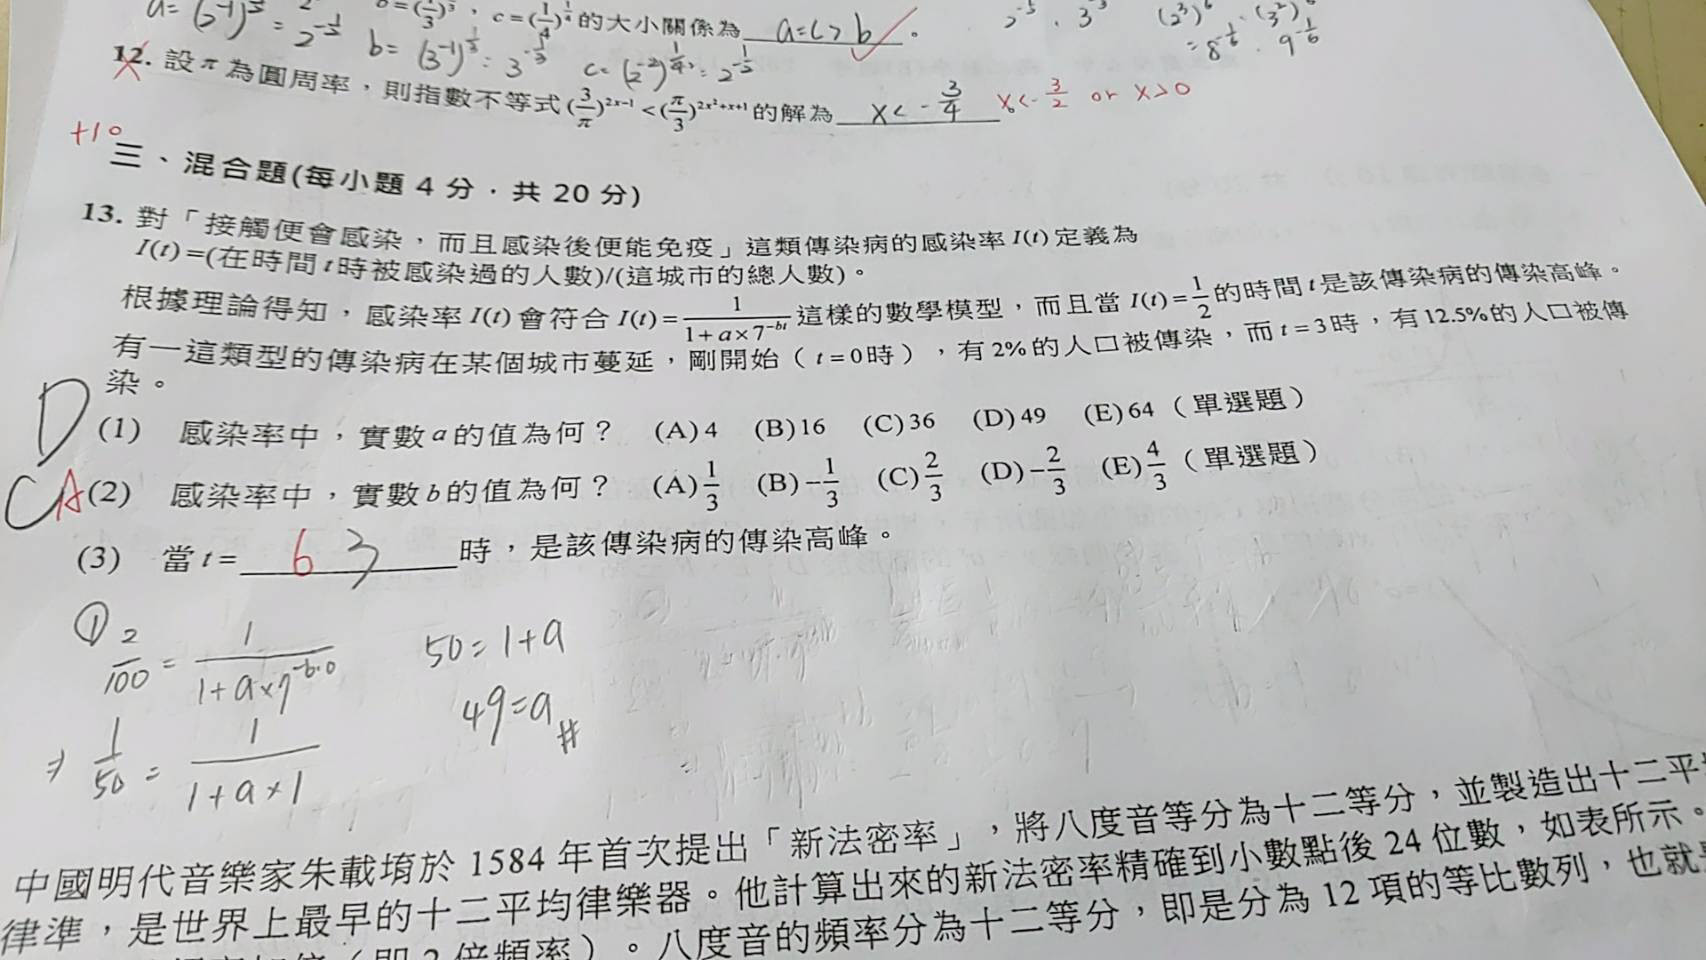 a=(2⁻¹)^½=2^-½ b=(1/3)^⅓，c=(1/4)^¼的大小關係為 a=c>b 。
b=(3⁻¹)^⅓=3^-⅓ c=(2⁻²)^¼=2^-½
(2³) (3²) =8^-1/6 . 9^-1/6
12. 設π為圓周率，則指數不等式(3/π)^(2x-1)<(π/3)^(2x²+x+1)的解為 x<-3/4 x<-3/2 or x>0
+1。
三、混合題(每小題 4 分．共 20 分)
13. 對「接觸便會感染，而且感染後便能免疫」這類傳染病的感染率I(t)定義為
I(t)=(在時間t時被感染過的人數)/(這城市的總人數)。
根據理論得知，感染率I(t)會符合I(t)=1/(1+a×7^(-bt))這樣的數學模型，而且當I(t)=1/2的時間t是該傳染病的傳染高峰。
有一這類型的傳染病在某個城市蔓延，剛開始（t=0時），有2%的人口被傳染，而t=3時，有12.5%的人口被傳
染。
D (1) 感染率中，實數a的值為何？ (A)4 (B)16 (C)36 (D)49 (E)64（單選題）
C A (2) 感染率中，實數b的值為何？ (A)1/3 (B)-1/3 (C)2/3 (D)-2/3 (E)4/3（單選題）
(3) 當t= 6 3 時，是該傳染病的傳染高峰。
① 2/100=1/(1+a×7^(-b·0)) 50=1+a
49=a #
⇒ 1/50=1/(1+a×1)
中國明代音樂家朱載堉於 1584 年首次提出「新法密率」，將八度音等分為十二等分，並製造出十二平
律準，是世界上最早的十二平均律樂器。他計算出來的新法密率精確到小數點後 24 位數，如表所示。
（即 2 倍頻率）。八度音的頻率分為十二等分，即是分為 12 項的等比數列，也就